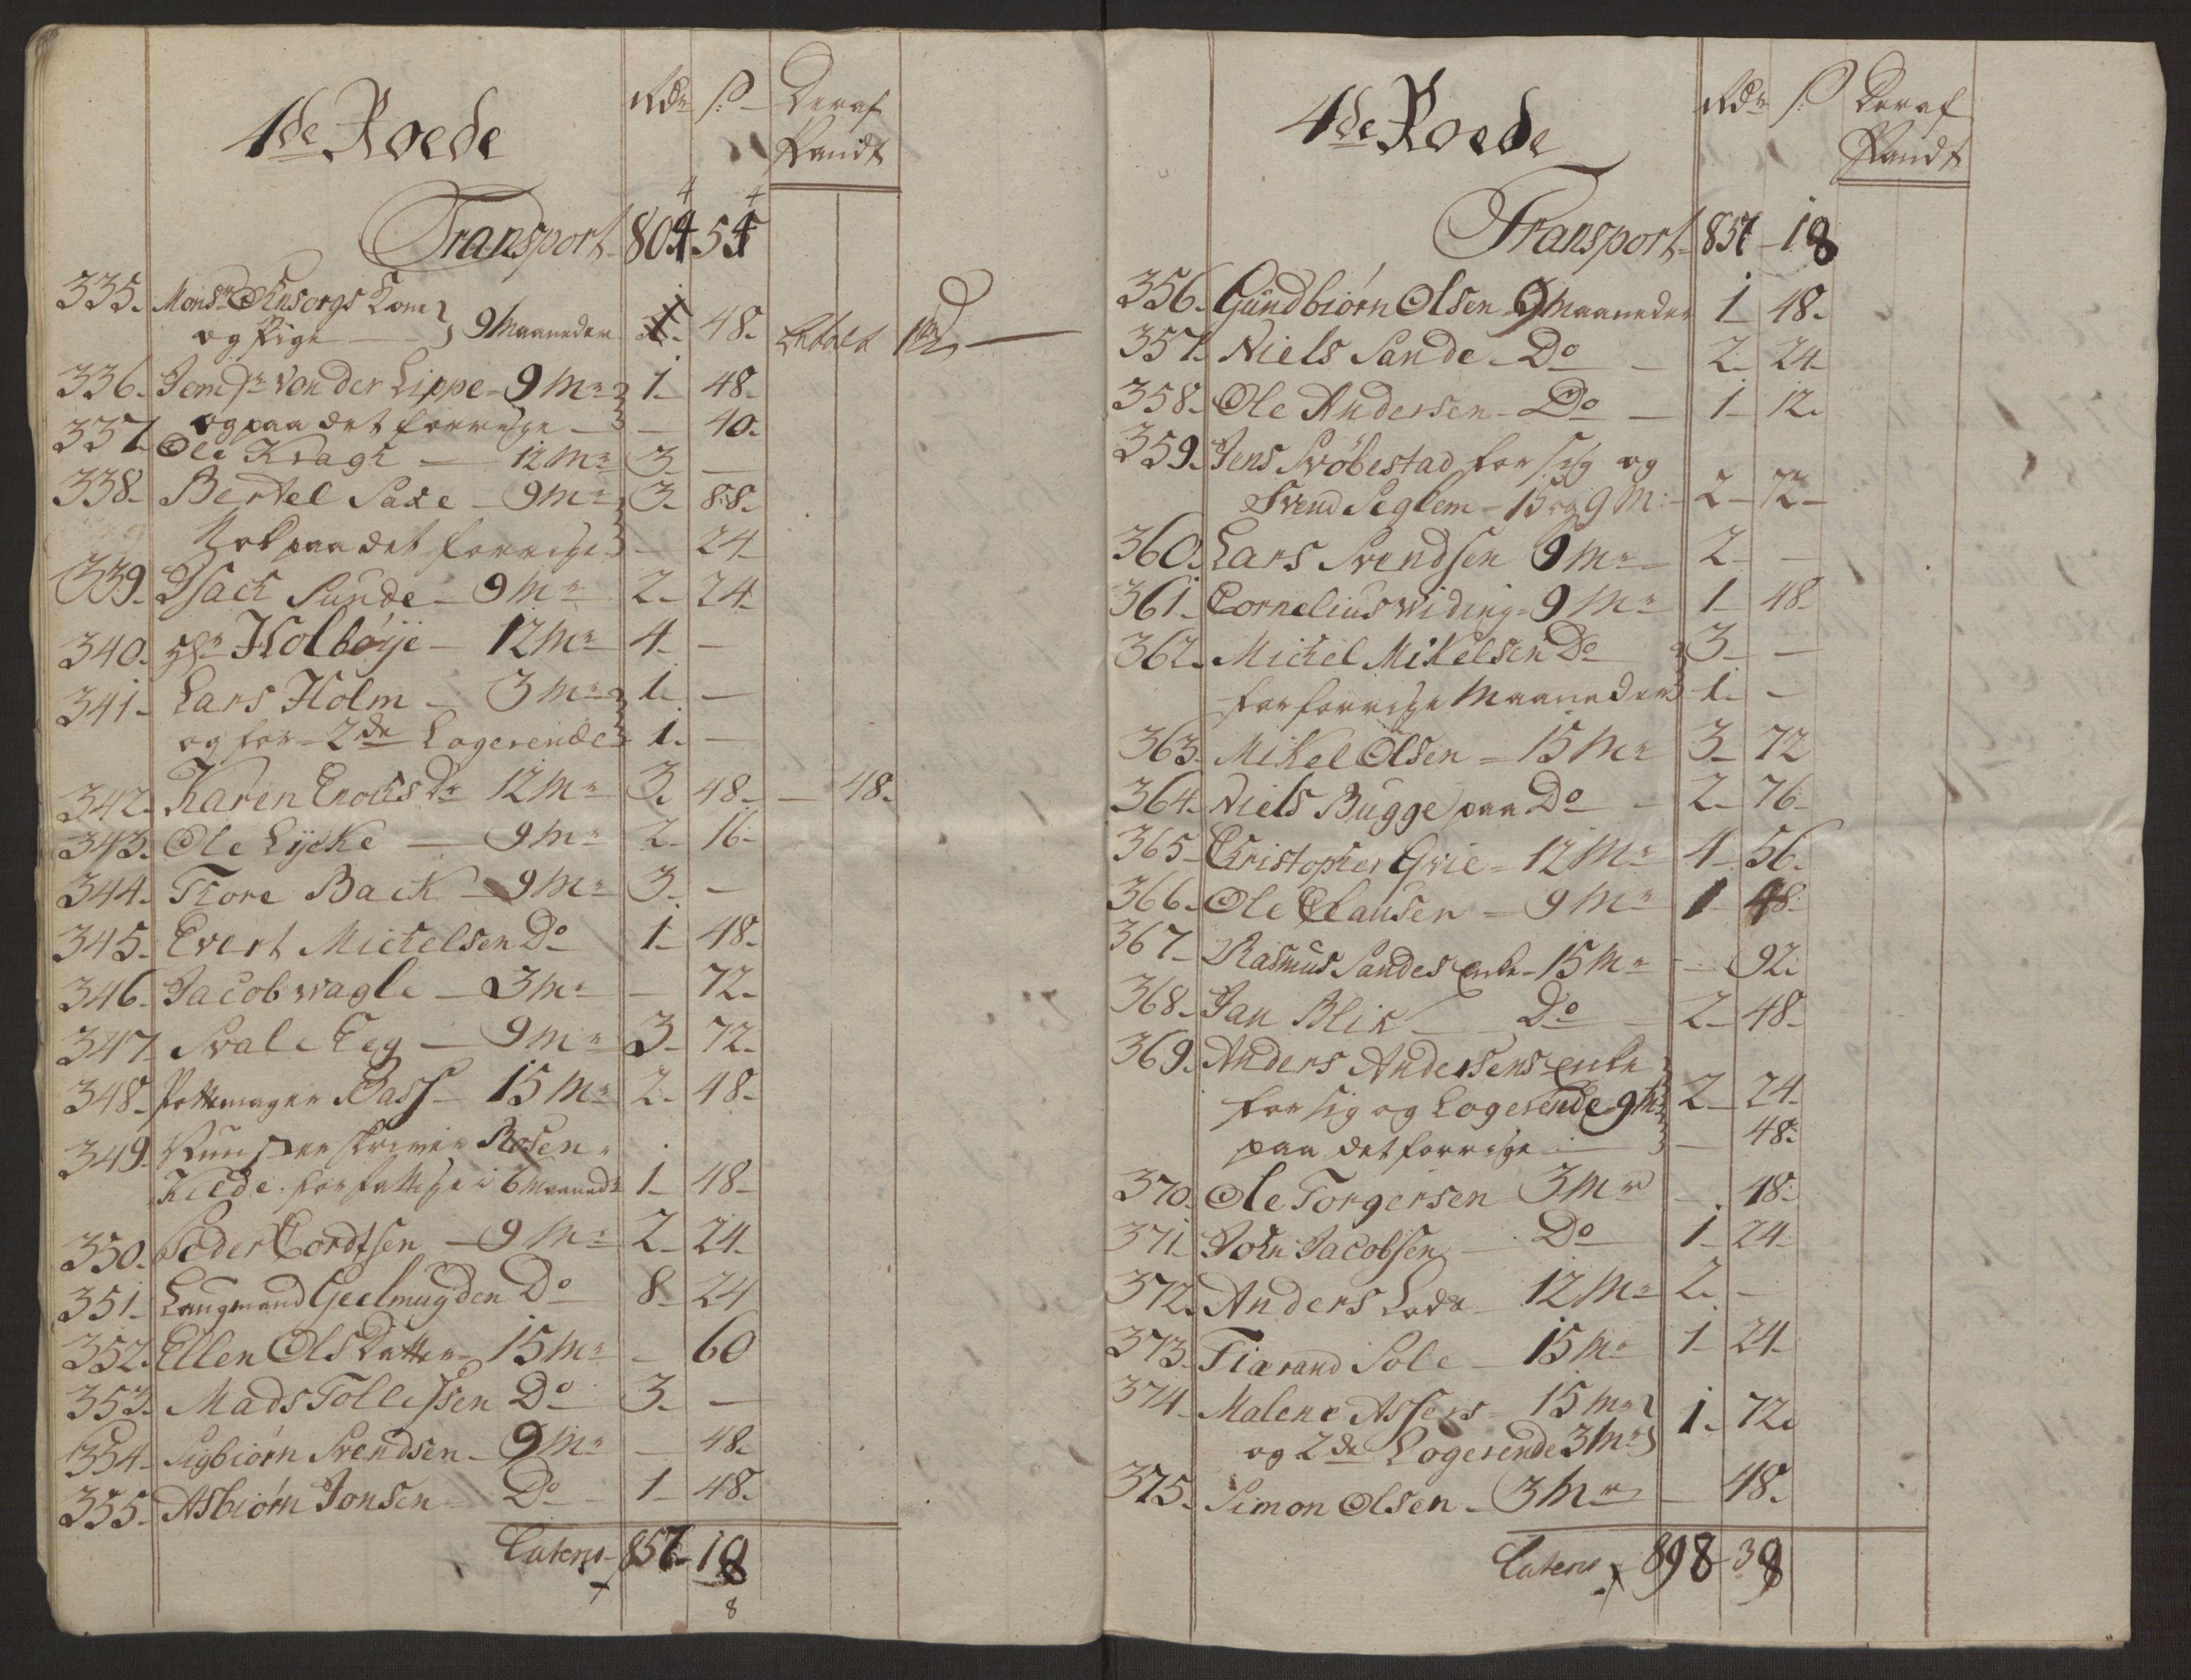 4de Roede Rdr ß Deraf
Pandt
Transport 804 54
335. Monsr Ensorgs Kone
og Pige 9 Maaneder 1. 48. betalt
336. Jomfr Von der Lippe - 9 Mr 1 - 48.
og paa det forrige - 40.
337. Ole Kragh - 12 Mr 3 -
338. Bertel Saxe - 9 Mr 3. 88.
Nok paa det forrige - 24
339. Isach Sunde - 9 Mr 2 - 24
340. Hr Holbøye - 12 Mr 4 -
341. Lars Holm - 3 Mr 1. -
og for 2de Logerende 1. -
342. Karen Enochs Dr 12 Mr 3. 48. - 48.
343. Ole Lycke - 9 Mr 2. 16.
344. Thore Back - 9 Mr 3. -
345. Evert Michelsen Do 1 - 48.
346. Jacob Wagle - 3 Mr - 72.
347. Svale Eeg - 9 Mr 3 - 72.
348. Pottemager Bass - 15 Mr 2. 48.
349. Rosen
Kilde for fattige i 6 Maaneder 1 - 48 -
350. Peder Cordtsen - 9 Mr 2 - 24
351. Laugmand Geelmuyden Do 8 - 24
352. Ellen Ols Datter - 15 Mr - 60
353. Mads Tollefsen Do 3. -
354. Sigbiørn Svendsen - 9 Mr - 48.
355. Asbiørn Jonsen - Do - 1 - 48.
Latens 857 - 18
8
4de Roede Rdr ß Deraf
Pandt
Transport 857 - 18
356. Gundbiørn Olsen 9 Maaneder 1 - 48.
357. Niels Sande - Do - 2. 24
358. Ole Andersen - Do - 1 - 12.
359. Jens Svøbestad for sig og
Svend Seglem - 15 og 9 M: - 2 - 72 -
360. Lars Svendsen 9 Mr 2 - -
361. Cornelius Widing - 9 Mr 1 - 48
362. Michel Mikelsen Do 3 - -
for forrige Maaneder 1. -
363. Mikel Olsen - 15 Mr 3 - 72
364. Niels Bugge paa Do - 2 - 76
365. Christopher Grie - 12 Mr 4 - 56.
366. Ole Clausen - 9 Mr 1 - 48.
367. Rasmus Sandes Enke - 15 Mr - 92.
368. Jan Blik - Do - 2 - 48.
369. Anders Andersens Enke
for sig og Logerende 9 Mr 2 - 24
paa det forrige - - 48.
370. Ole Torgersen 3 Mr - 48.
371. John Jacobsen - Do 1 - 24
372. Anders Lode - 12 Mr 2. -
373. Tiærand Sole - 15 Mr 1 - 24
374. Malene Assers - 15 Mr
og 2de Logerende 3 Mr 1. 72.
375. Simon Olsen - 3 Mr - 48.
Latens 898 - 38